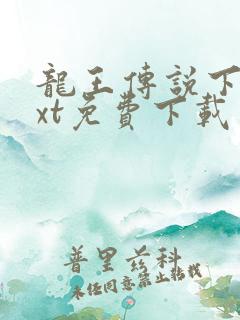 龍王傳說下
xt免費下載
普里兹科
未经同意禁止转载